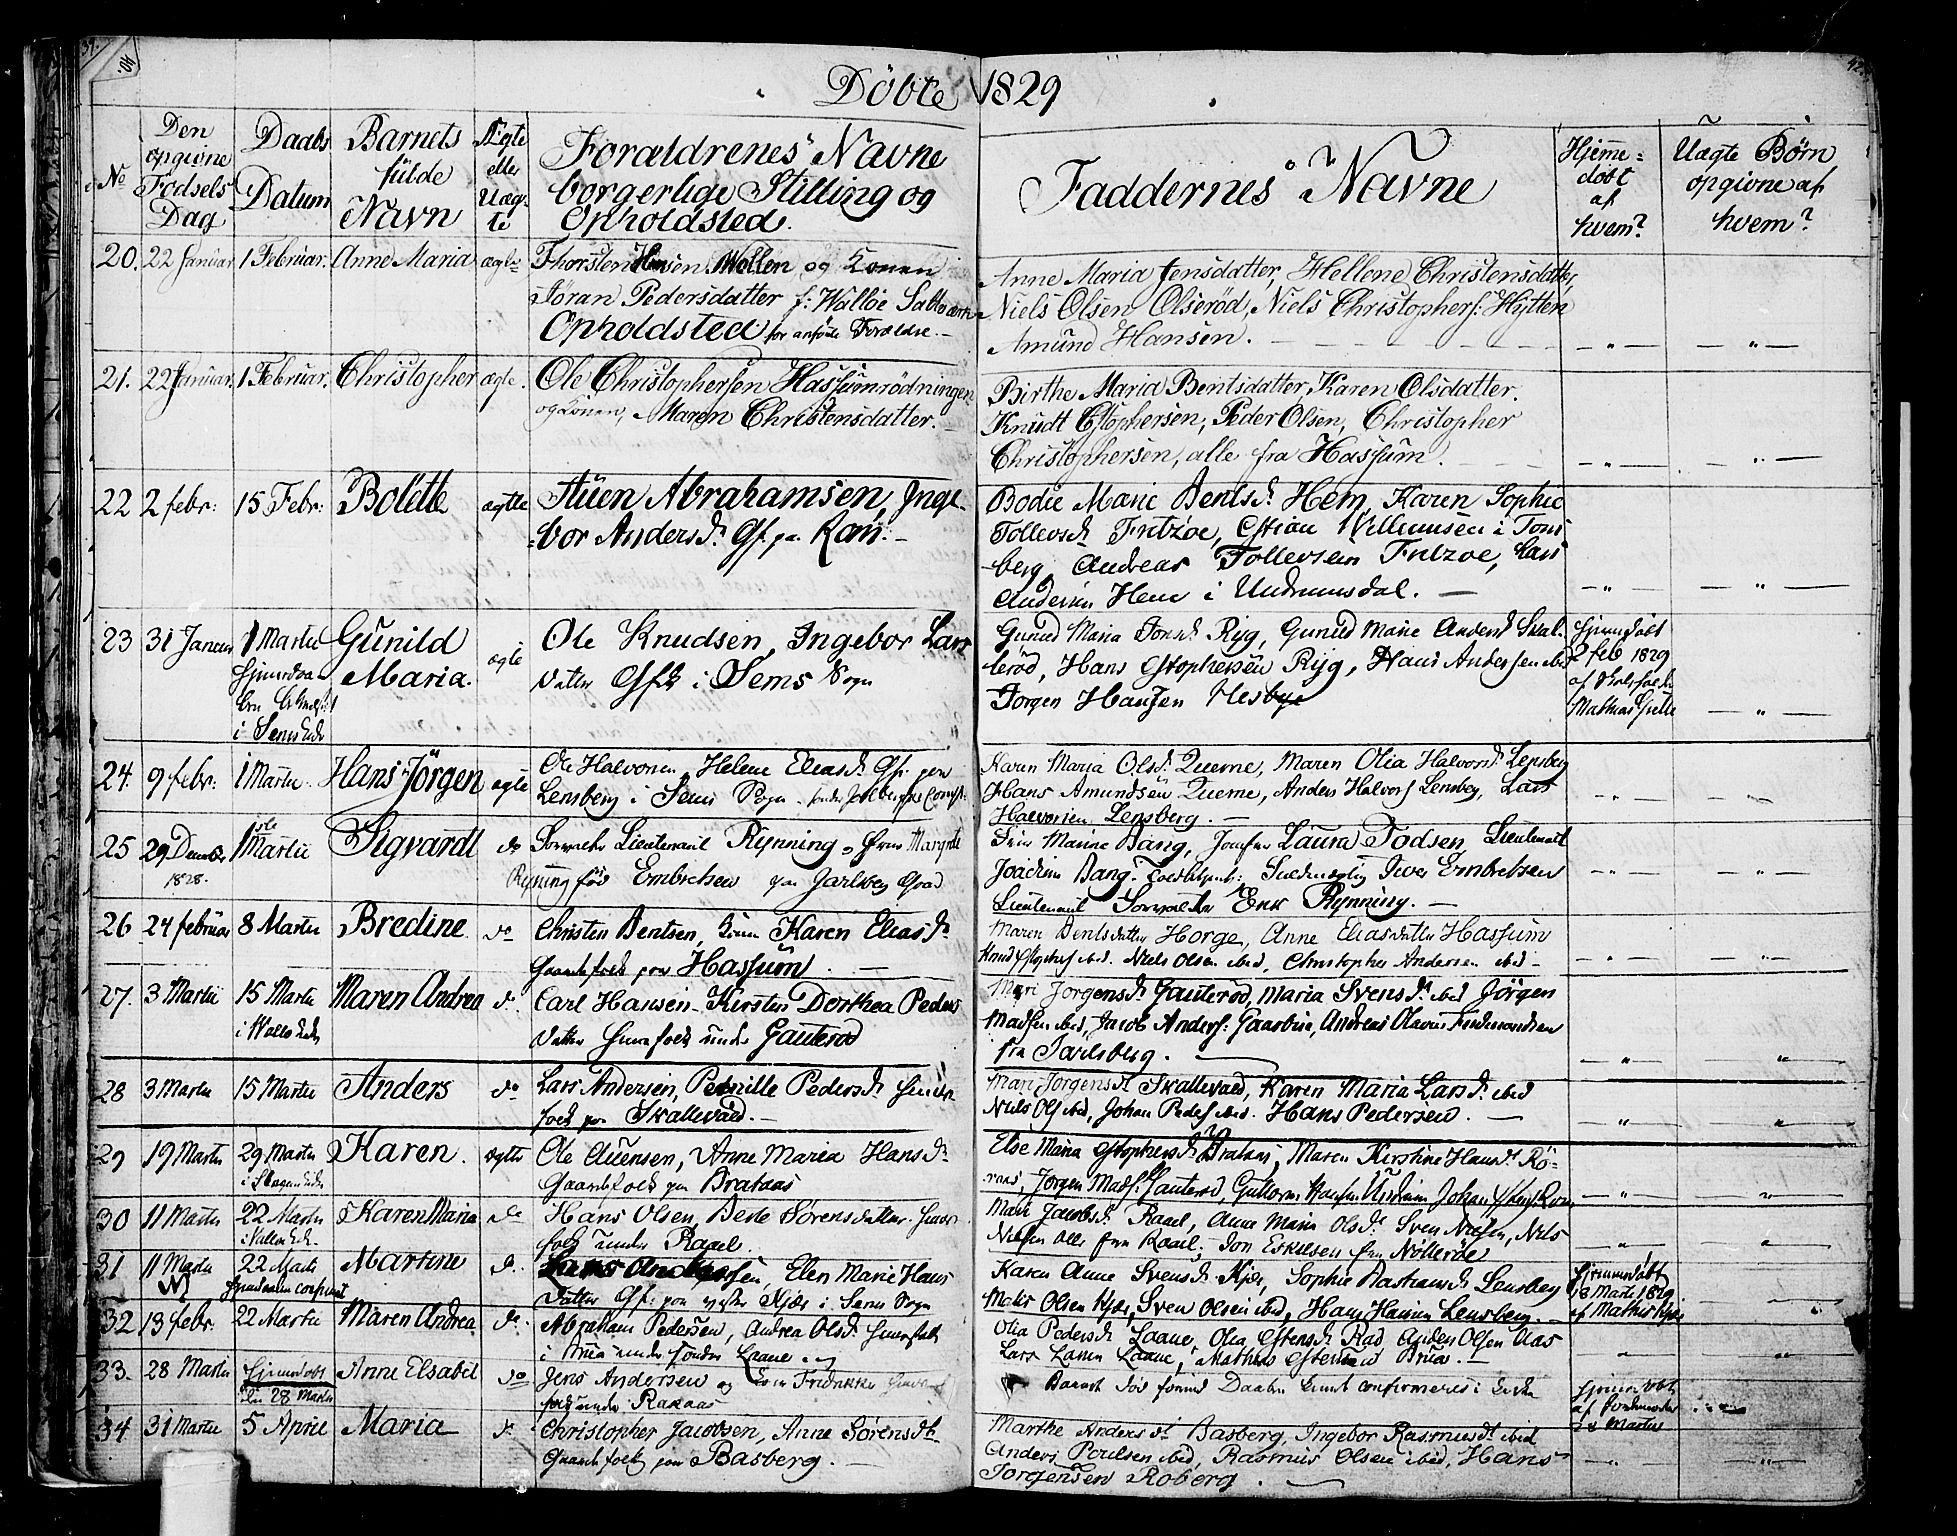 Döbte 1829
No
Den opgivne Födsels Dag
Daabs Datum
Barnets fulde Navn
Ægte eller Uægte
Forældrenes Navne borgerlige Stilling og Opholdsted.
Faddernes Navne
Hjemedöbt af hvem?
Uægte Børn opgivne af hvem?
20. 22 Januar 1 Februar. Anne Maria ægte Thorsten Hansen Wollen og Konen
Jöran Pedersdatter f: Walløe Saltværk
Opholdsted for anförte Forældre.
Anne Maria Jensdatter, Hellene Christensdatter,
Niels Olsen Olseröd, Niels Christophers: Hÿtten
Amund Hansen.
21. 22 Januar. 1 Februar. Christopher ægte. Ole Christophersen Hassumrödningen
og Konen, Maren Christensdatter.
Birthe Maria Bentsdatter, Karen Olsdatter.
Knudt Cstophersen, Peder Olsen, Christopher
Christophersen, alle fra Hassum.
22 2 febr: 15 Febr: Bolette ægte Auen Abrahamsen, Inge-
bor Andersd. Gf. paa Ram.
Bodie Marie Bentsd. Hem, Karen Sophie
Tollevsd. Fritzøe, Cstian Willumsen i Tons-
berg, Andreas Tollevsen Fritzoe, Lars
Andersen Hem i Undrumsdal.
23 31 Januar 1 Martii Gunild Maria. ægte Ole Knudsen, Ingebor Lars
datter Gfk i Sems Sogn
i Sems
Gunild Maria Jonsd. Ryg, Gunild Marie Andersd. Skal-
leröd, Hans Cstophersen Ryg, Hans Andersen ibid
Jorgen Hansen Nesbye
Hjemedöbt
2 feb 1829
af
Mathias
24. 9 febr: 1 Martii. Hans Jörgen ægte Ole Halvorsen, Helene Eliasd. Gf. paa
Lensberg i Sems Sogn
Karen Maria Olsd. Querne, Maren Olia Halvorsd. Lensberg
Hans Amundsen Querne, Anders Halvors Lensberg, Lars
Halvorsen Lensberg.
25 29 December 1828. 1ste Martii Sigvardt do Forvalter Lieutenant Rynning og Frue Margrete
Rynning föd Embretsen paa Jarlsberg Gaard
Frue Marine Bang, Jomfru Laura Todsen, Lieutenant
Joachim Bang, Iver Embretsen
Lieutenant Forvalter Erik Rynning.
26 24 februar 8 Martii Bredine do Christen Bentsen, Konen Karen Eliasd.
Gaardfolk paa Hassum.
Maren Bentsdatter Horge, Anne Eliasdatter Hassum
Knud Cstophers ibid. Niels Olsen ibid, Christopher Andersen ibid
27. 3 Martii 15 Martii Maren Andrea do Carl Hansen, Kirsten Dorthea Peders
i Walløe
datter Huusfolk under Gauteröd
Mari Jorgensd. Gauteröd, Maria Svensd. ibid Jörgen
Madsen ibid, Jacob Anders: Gaasbue, Andreas Olavus Ferdinandsen
fra Jarlsberg.
28 3 Martii 15 Martii Anders do Lars Andersen, Pernille Pedersd. Huus
folk paa Skallevald.
Mari Jorgensd. Skallevald, Karen Maria Larsd. ibid
Niels Ols ibid, Johan Peders ibid. Hans Pedersen.
29 19 Martii 29 Martii Karen. ægte Ole Auensen, Anne Maria Hansd.
i Slagen
Gaardfolk paa Brataas
Else Maria Cstophersd. Brataas, Maren Kirstine Hansd. Rö-
raas, Jörgen Mads: Gauteröd, Guttorm Hansen Undrum Johan
30 11 Martii 22 Martii Karen Maria do Hans Olsen, Berte Sörensdatter. Huus
folk under Raael.
Mari Jacobsd. Raael, Anne Maria Olsd. Sven Nielsen, Nils
Nilsen alle fra Raael, Jon Eskilsen fra Nötteröe
31 11 Martii 22 Martii Martine do. Lars Andersen, Elen Marie Hans
Datter Gf: paa vestre Kjær i Sems Sogn
Karen Anne Svensd. Kjær, Sophie Bastiansd. Lensberg
Mathis Olsen Kjær, Sven Olsen ibid, Hans Hansen Lensberg.
Hjemmedöbt
18 Martii 1829
af Mathis Kjær
32 13 febr. 22 Martii Maren Andrea do. Abraham Pedersen, Andrea Olsd. Huusfolk
i Brua under søndre Laane.
Olia Pedersd. Laane, Olia Cstensd. Rad Anders Olsen Aas
Lars Larsen Laane, Mathias Cstensen Brua.
33. 28 Martii Hjemedöbt den 28 Martii Anne Elsabet do Jens Andersen og Kone Fridrikke Huus
folk under Rakaas
Barnet död forend Daaben kunde confirmeres i Kirken
Hjemmedöbt
af Jordemoder
28 Martii
34 31 Martii 5 April Maria do. Christopher Jacobsen, Anne Sörensd.
Gaardfolk paa Basberg.
Marthe Andersd. Basberg, Ingebor Rasmusd. ibid
Anders Poulsen ibid, Rasmus Olsen ibid, Hans
Jorgensen Roberg.